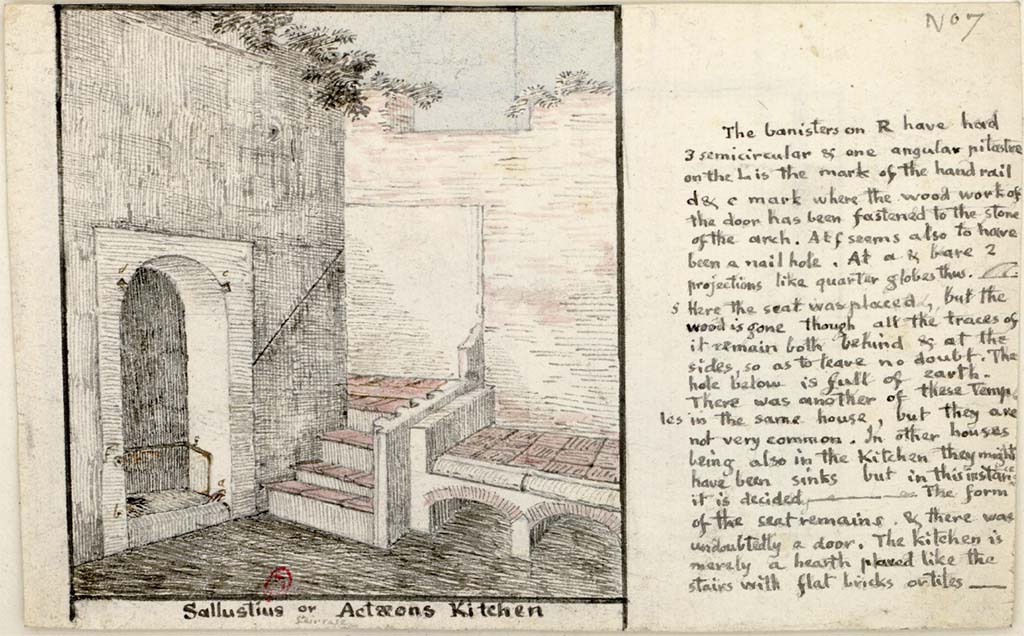 No 7
The banisters on R have had
3 semicircular & one angular pilastre
on the L is the mark of the hand rail
d & c mark where the wood work of
the door has been fastened to the stone
of the arch. At f seems also to have
been a nail hole. At a & b are 2
projections like quarter globes thus.
5 Here the seat was placed, but the
wood is gone though all the traces of
it remain both behind & at the
sides, so as to leave no doubt. The
hole below is full of earth.
There was another of these Temp
les in the same house, but they are
not very common. In other houses
being also in the Kitchen they might
have been sinks but in this instan
it is decided, The form
of the seat remains. & there was
undoubtedly a door. The kitchen is
merely a hearth paved like the
stairs with flat bricks or tiles
d c
a
b
Sallustius or Actæons Kitchen